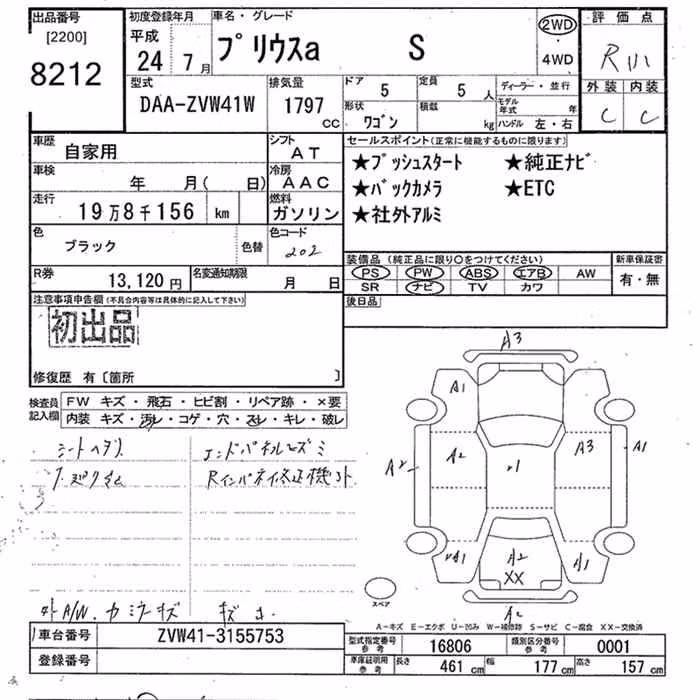 出品番号
[2200]
8212
初度登録年月
平成
24 7月
車名・グレード
プリウスa S
2WD
・
4WD
評価点
外装 内装
C C
型式
DAA-ZVW41W
排気量
1797
CC
ドア
5
定員
5 人
形状
ワゴン
積載
kg
ディーラー・並行
モデル年式 年
ハンドル 左・右
車歴
自家用
シフト
AT
車検
年 月( 日)
冷房
AAC
走行
19万8千156 km
燃料
ガソリン
色
ブラック
色替
色コード
202
R券
13,120 円
名変通知期限
月 日
セールスポイント(正常に機能するものに限ります)
★プッシュスタート ★純正ナビ
★バックカメラ ★ETC
★社外アルミ
装備品 (純正品に限り〇をつけてください)
PS PW ABS エアB AW
SR ナビ TV カワ
新車保証書
有・無
後日品
注意事項申告欄(不具合内容等は具体的に記入して下さい)
初出品
修復歴 有〔箇所 〕
検査員記入欄
FW キズ・飛石・ヒビ割・リペア跡・×要
内装 キズ・汚レ・コゲ・穴・スレ・キレ・破レ
A3
A1
A2
A2
A3
A1
A1
A1
A2
XX
A2
スペア
A-キズ E-エクボ U-凹み W-補修跡 S-サビ C-腐食 XX-交換済
車台番号
ZVW41-3155753
登録番号
型式指定番号
参考
16806
類別区分番号
参考
0001
車庫証明用
参考
長さ
461 cm
幅
177 cm
高さ
157 cm